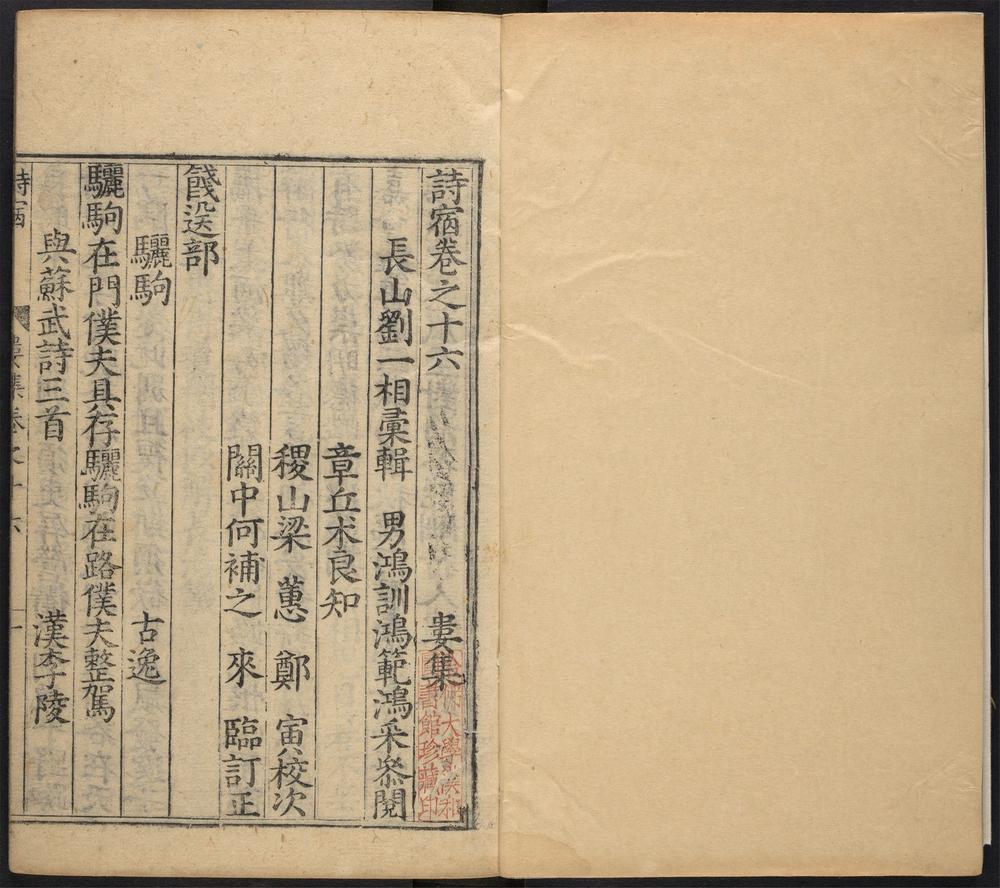 詩宿卷之十六 婁集
長山劉一相彙輯 男鴻訓鴻範鴻采叅閱
章丘术良知
稷山梁 蕙 鄭 寅校次
關中何補之 來 臨訂正
餞送部
驪駒 古逸
驪駒在門僕夫具存驪駒在路僕夫整駕
與蘇武詩三首 漢李陵
詩宿 婁集卷之十六 一
哈佛大學漢和圖書館珍藏印